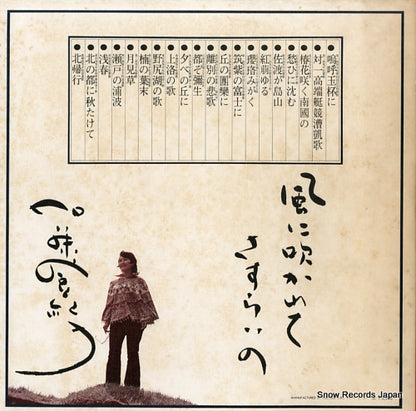 嗚呼玉杯に
対一高端艇競漕凱歌
椿花咲く南國の
愁ひに沈む
佐渡が島山
紅萌ゆる
瓔珞みがく
筑紫の富士に
丘の團欒に
離別の悲歌
都ぞ彌生
夕べの丘に
上洛の歌
野尻湖の歌
楠の葉末
月見草
瀬戸の浦波
浅春
北の都に秋たけて
北帰行
風に吹かれて
さすらいの
加藤登紀子
Snow Records Japan